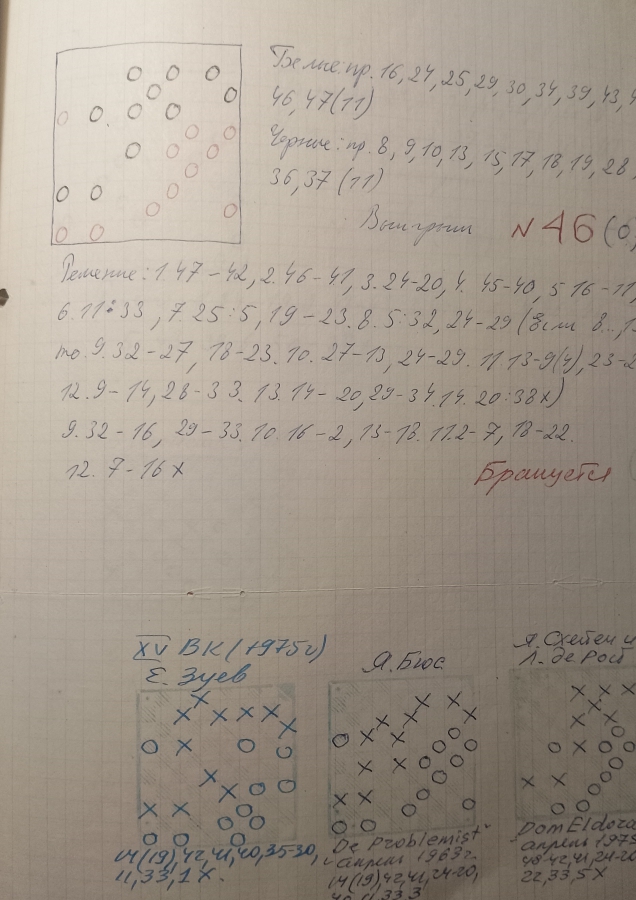 Белые: пр. 16, 24, 25, 29, 30, 34, 39, 43, 4
46, 47 (11)
Черные: пр. 8, 9, 10, 13, 15, 17, 18, 19, 28,
36, 37 (11)
Выигрыш N 46 (0,
Решение: 1. 47-42, 2. 46-41, 3. 24-20, 4. 45-40, 5 16-11,
6. 11:33, 7. 25:5, 19-23. 8. 5:32, 24-29 (Если 8..., 1
то 9. 32-27, 18-23. 10. 27-13, 24-29. 11. 13-9(4), 23-2
12. 9-14, 28-33. 13. 14-20, 29-34. 14. 20:38x)
9. 32-16, 29-33. 10. 16-2, 13-18. 11. 2-7, 18-22.
12. 7-16 x Бракуется
XV ВК (1975г)
Е. Зуев
Я. Бюс
Я. Схетен и
Л. де Рой
14(19), 42, 41, 40, 35-30,
11, 33, 1 X.
De Problemist
апрель 1963г.
14(19) 42, 41, 24-20,
40, 11, 33, 3
Dom Eldora
апрель 1975
40, 42, 41, 24-20
22, 33, 5 X